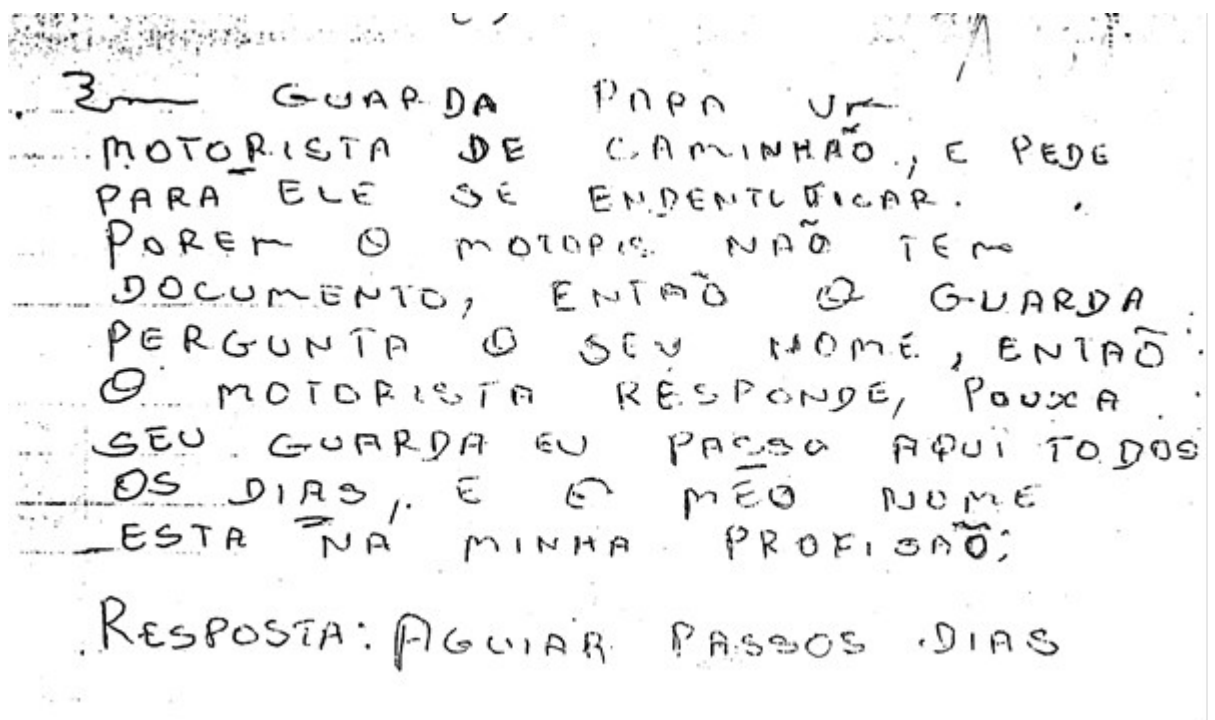 3 — GUARDA PARA UM
MOTORISTA DE CAMINHÃO, E PEDE
PARA ELE SE ENDENTIFICAR.
POREM O MOTORIS NÃO TEM
DOCUMENTO, ENTAÕ O GUARDA
PERGUNTA O SEU NOME, ENTAÕ
O MOTORISTA RESPONDE, POUXA
SEU GUARDA EU PASSO AQUI TODOS
OS DIAS, E O MEO NOME
ESTA NA MINHA PROFISAÕ;
RESPOSTA: AGUIAR PASSOS DIAS